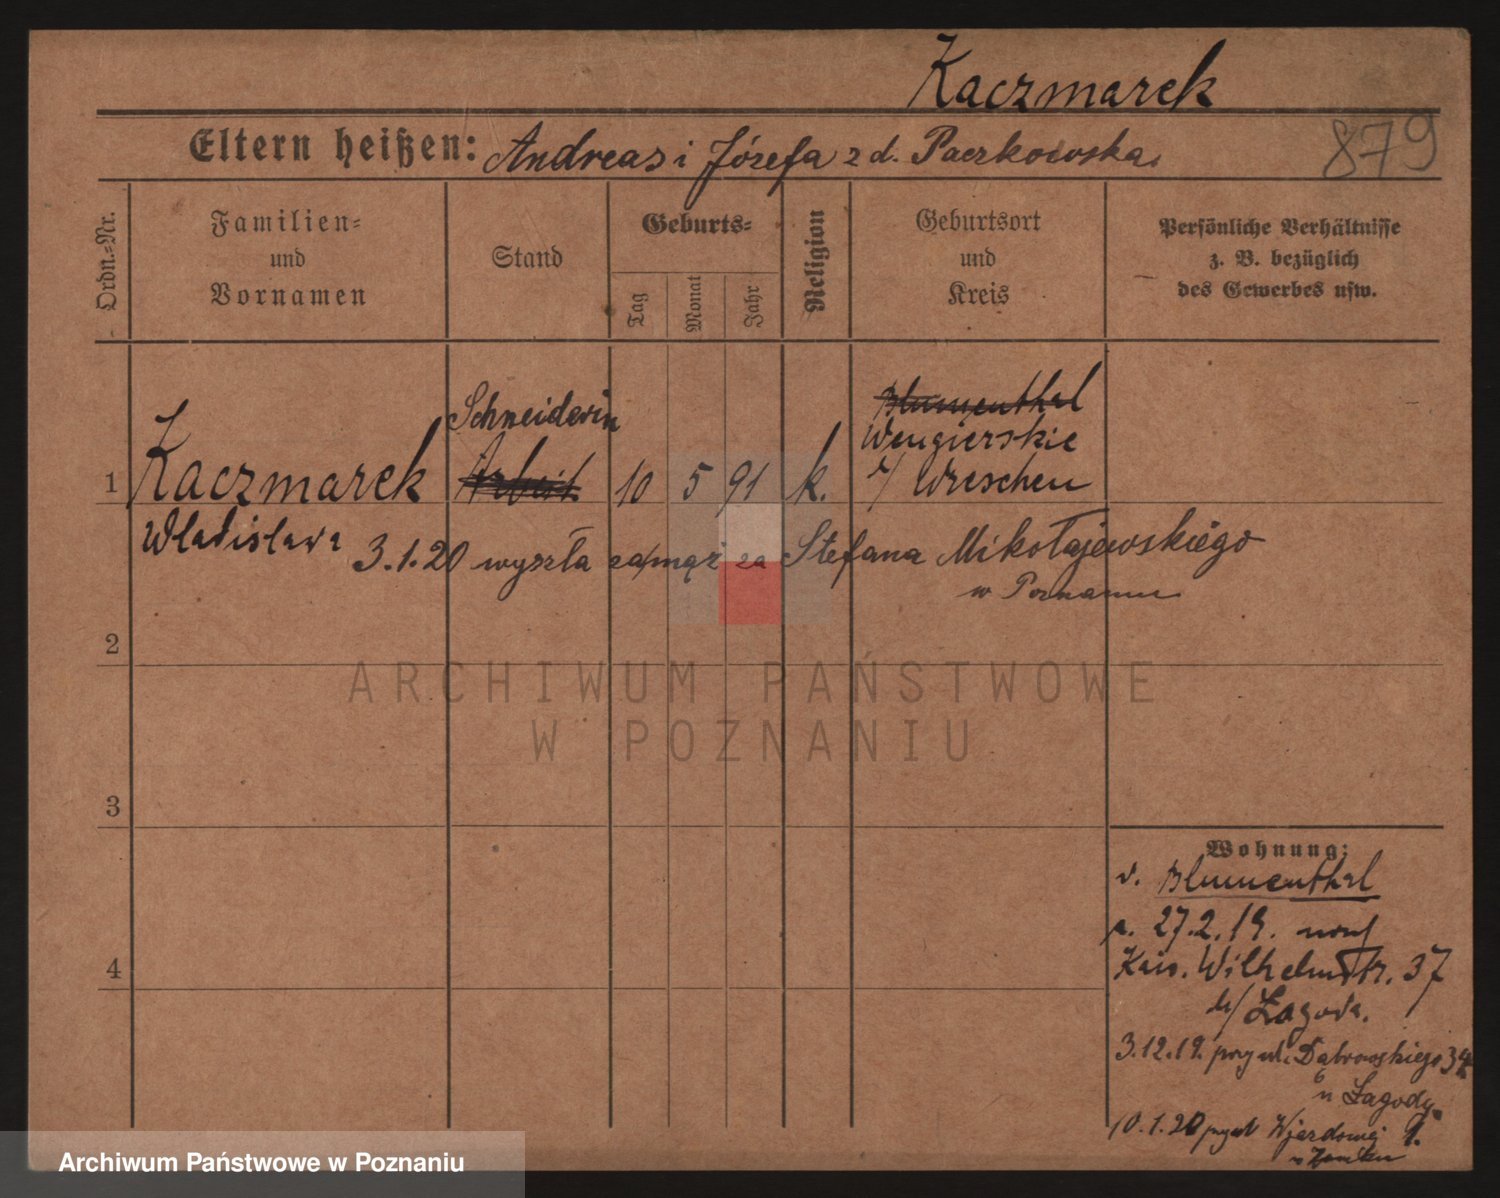 Kaczmarek
879
Eltern heißen: Andreas i Józefa z d. Paczkowska.
Ordn.-Nr.
Familien-
und
Vornamen
Stand
Geburts-
Tag
Monat
Jahr
Religion
Geburtsort
und
Kreis
Persönliche Verhältnisse
z. B. bezüglich
des Gewerbes usw.
Schneiderin
Blumenthal
Wengierskie
1 Kaczmarek Arbeit. 10 5 91 k. Wreschen
Wladislawa
3.1.20 wyszła zamąż za Stefana Mikołajewskiégo
w Poznaniu
2
3
4
Wohnung:
v. Blumenthal
27.2.19.
Kais. Wilhelmstr. 37
b/ Lagoda.
3.12.19. przy ul. Dąbrowskiego 34
u Łagody
10.1.20 przy ul Wjazdowej 1.
w Zamku
ARCHIWUM PAŃSTWOWE
W POZNANIU
Archiwum Państwowe w Poznaniu